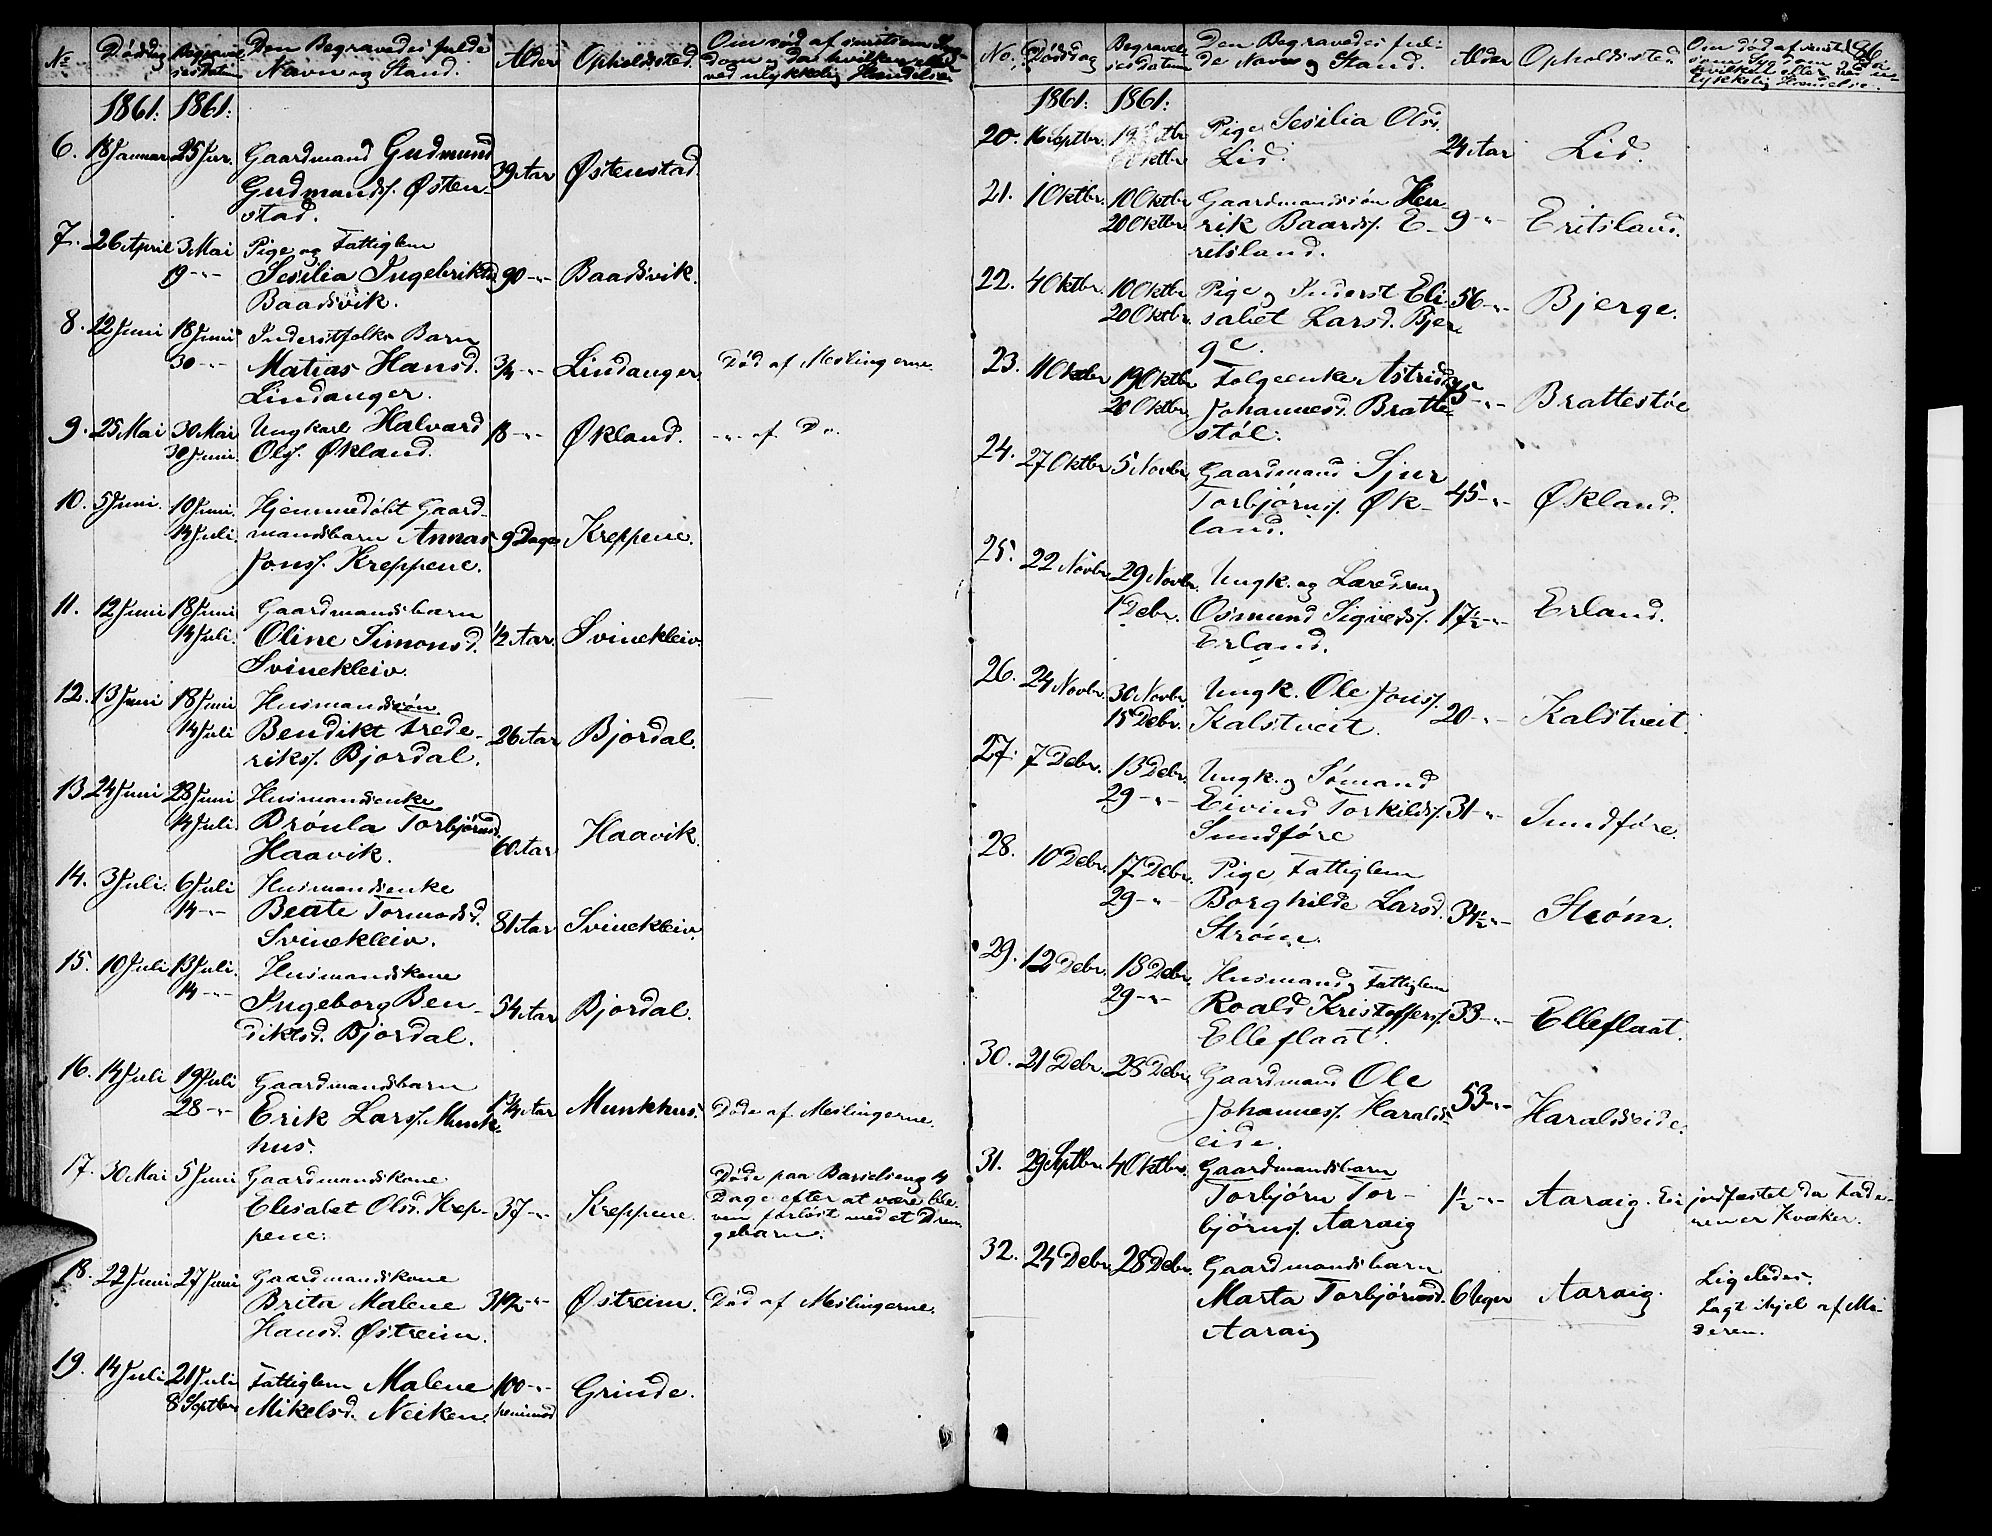 No Dødsdag Begravelsesdatum Den Begravedes fulde Navn og Stand. Alder Opholdssted. Om død af smitsom Syg-
dom og da hvilken eller
ved ulykkelig Hændelse
1861: 1861:
6. 18 Januar 25 Jar. Gaardmand Gudmund
Gudmunds. Østen- 39 Aar Østenstad.
stad.
7. 26 April 3 Mai Pige og Fattiglem
19 -"- Sesilia Ingebriktsd. 90 -"- Baadsvik.
Baadsvik.
8. 12 Juni 18 Juni Inderstfolks Barn
30 -"- Matias Hansd. 3/4 -"- Lindanger Død af Meslingerne.
Lindanger.
9. 25 Mai 30 Mai Ungkarl Halvard 18 -"- Økland. -"- af Do.
30 Juni Ols. Økland.
10. 5 Juni. 10 Juni. Hjemmedøbt Gaard-
14 Juli. mandsbarn Annas 9 Dage Kreppene.
Jons. Kreppene.
11. 12 Juni 18 Juni Gaardmandsbarn
14 Juli. Oline Simonsd. 1/2 Aar. Svinekleiv.
Svinekleiv.
12. 13 Juni 18 Juni Husmandssøn
14 Juli Bendikt Frede- 26 Aar Bjordal.
riks. Bjordal.
13. 24 Juni 28 Juni Husmandsenke
14 Juli. Brønla Torbjørnsd. 60 Aar Haavik.
Haavik.
14. 3 Juli. 6 Juli Husmandsenke
14 -"- Beate Tormodsd. 81 Aar Svinekleiv.
Svinekleiv.
15. 10 Juli 13 Juli. Husmandskone
14 -"- Ingeborg Ben- 54 Aar Bjordal.
diktsd. Bjordal.
16. 14 Juli 19 Juli Gaardmandsbarn
28 -"- Erik Lars. Munk- 1 3/4 Aar Munkhus. Døde af Meslingerne.
hus.
17. 30 Mai 5 Juni Gaardmandskone Døde paa Barselseng 4
Elisabet Olsd. Krep- 37 -"- Kreppene. Dage efter at være ble-
pene. ven forløst med et Dren-
gebarn.
18. 22 Juni 27 Juni Gaardmandskone
Brita Malene 31 1/2 -"- Østreim. Død af Meslingerne.
Hansd. Østreim.
19. 14 Juli 21 Juli Fattiglem Malene 100 -"- Grinde.
8 Septbr Mikelsd. Neiken.
No. Dødsdag Begravelsesdatum Den Begravedes ful-
de Navn og Stand. Alder Opholdssted 86
1861: 1861:
20. 16 Septbr. Pige Sesilia Olsd. 24 Aar Lid.
6 Oktbr Lid.
21. 1 Oktbr. 10 Oktbr Gaardmandssøn Hen-
20 Oktbr. rik Baards. E- 9 -"- Eritsland.
ritsland.
22. 4 Oktbr. 10 Oktbr Pige og Inderst Eli- 56 -"- Bjerge.
20 Oktbr. sabet Larsd. Bjer-
ge.
23. 11 Oktbr 19 Oktbr Følgeenke Astrid
20 Oktbr. Johannesd. Bratte- 75 -"- Brattestøe
støl.
24. 27 Oktbr 5 Novbr. Gaardmand Sjur
Torbjørns. Øk- 45 -"- Økland.
land.
25. 22 Novbr. 29 Novbr. Ungk. og Læredreng
1 Debr. Osmund Sigveds. 17 1/2 -"- Erland.
Erland.
26. 24 Novbr. 30 Novbr. Ungk. Ole Jons.
15 Debr. Kalstveit. 20 -"- Kalstveit.
27. 7 Debr. 13 Debr. Ungk. og Sømand
29 -"- Eivind Torkilds. 31 -"- Sundføre.
Sundføre
28. 10 Debr. 17 Debr. Pige, Fattiglem
29 -"- Borghilde Larsd. 34 1/2 -"- Strøm.
Strøm.
29. 12 Debr. 18 Debr. Husmand og Fattiglem
29 -"- Roald Kristoffers. 33 -"- Elleflaat.
Elleflaat.
30. 21 Debr. 28 Debr. Gaardmand Ole 53 -"- Haraldseide.
Johannes. Haralds-
eide.
31. 29 Septbr. 4 Oktbr. Gaardmandsbarn
Torbjørn Tor- 1/2 -"- Aaraig. Ei jordfæstet da Fade-
bjørns. Aaraig ren er Kvæker.
32. 24 Debr. 28 Debr. Gaardmandsbarn Ligeledes.
Marta Torbjørnsd. 6 Uger Aaraig. Lagt ihjel af Mo-
Aaraig deren.